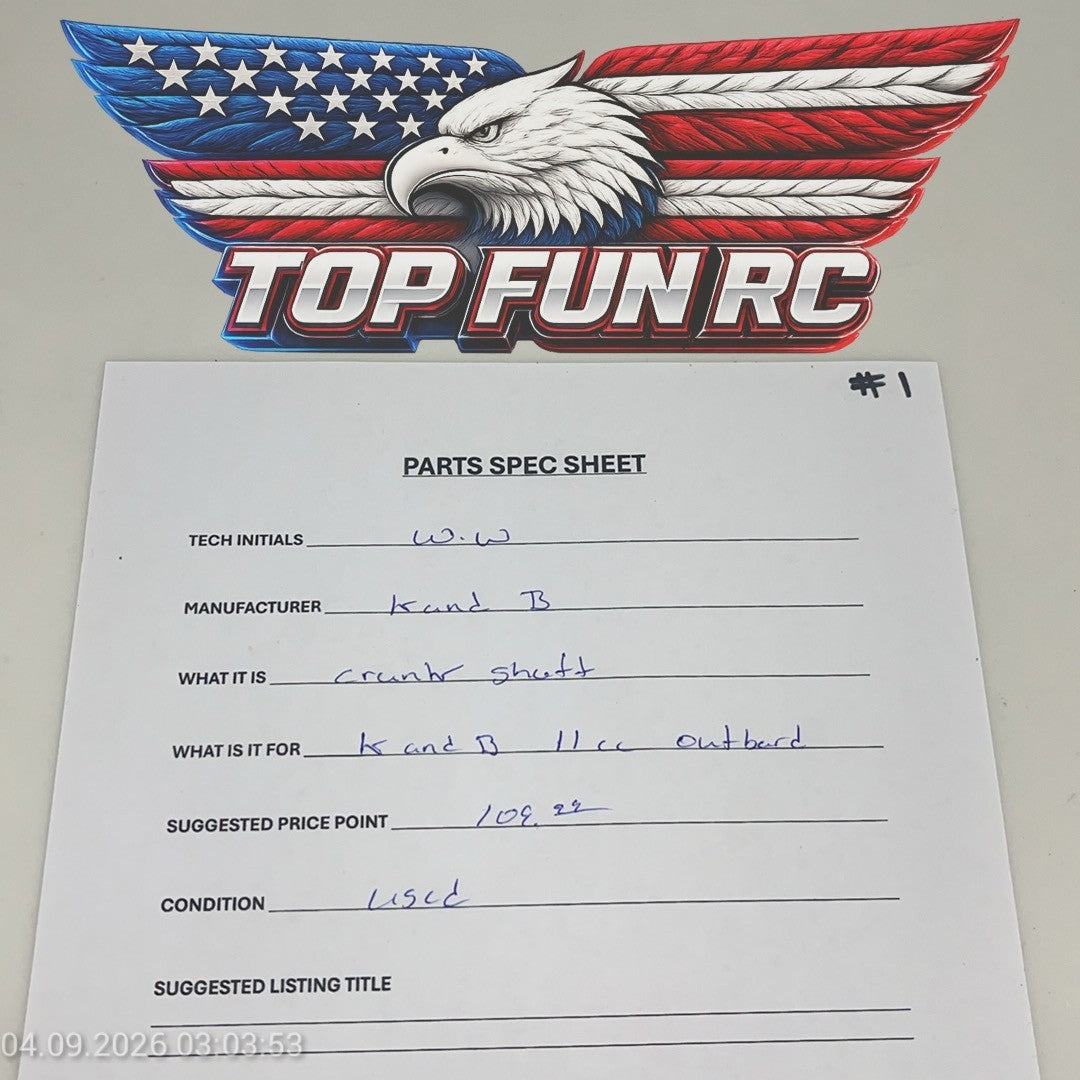 TOP FUN RC
#1
PARTS SPEC SHEET
TECH INITIALS W.W
MANUFACTURER K and B
WHAT IT IS crank shaft
WHAT IS IT FOR K and B 11cc outbard
SUGGESTED PRICE POINT 109.99
CONDITION used
SUGGESTED LISTING TITLE
04.09.2026 03:03:53